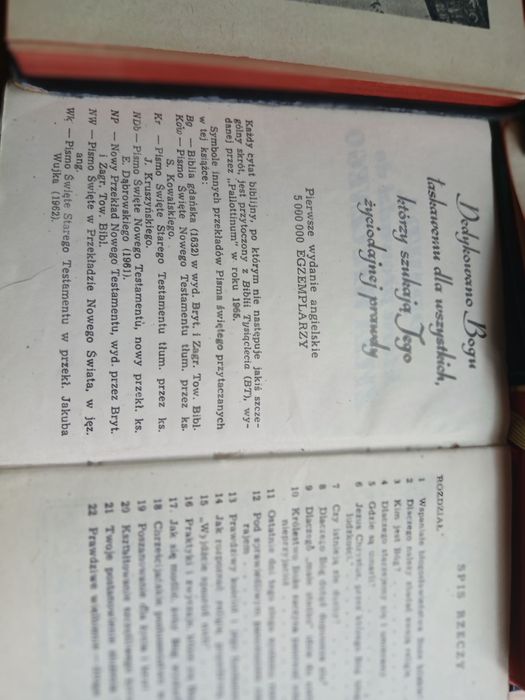 Dedykowano Bogu
łaskawemu dla wszystkich,
którzy szukają Jego
życiodajnej prawdy
Pierwsze wydanie angielskie
5 000 000 EGZEMPLARZY
Każdy cytat biblijny, po którym nie następuje jakiś szcze-
gólny skrót, jest przytoczony z Biblii Tysiąclecia (BT), wy-
danej przez „Pallottinum" w roku 1965.
Symbole innych przekładów Pisma świętego przytaczanych
w tej książce:
Bg — Biblia gdańska (1632) w wyd. Bryt. i Zagr. Tow. Bibl.
Kow — Pismo Święte Nowego Testamentu tłum. przez ks.
S. Kowalskiego.
Kr — Pismo Święte Starego Testamentu tłum. przez ks.
J. Kruszyńskiego.
NDb — Pismo Święte Nowego Testamentu, nowy przekł. ks.
E. Dąbrowskiego (1961).
NP — Nowy Przekład Nowego Testamentu, wyd. przez Bryt.
i Zagr. Tow. Bibl.
NW — Pismo Święte w Przekładzie Nowego Świata, w jęz.
ang.
Wk — Pismo Święte Starego Testamentu w przekł. Jakuba
Wujka (1962).
SPIS RZECZY
ROZDZIAŁ
1 Wspaniałe błogosławieństwa
2 Dlaczego należy zbadać swoją religię
3 Kim jest Bóg?
4 Dlaczego starzejemy się i umieramy
5 Gdzie są umarli?
6 Jezus Chrystus, przez którego Bóg
ludzkości
7 Czy istnieją złe duchy?
8 Dlaczego Bóg
9 Dlaczego „mała trzódka" idzie do nieba
10 Królestwo Boże
nieprzyjaciół
11 Ostatnie dni tego złego
12 Pod sprawiedliwym
rajem
13 Prawdziwy kościół i jego
14 Jak rozpoznać religię
15
16 Praktyki i zwyczaje, które
17 Jak się modlić, żeby Bóg
18 Chrześcijańskie posłuszeństwo
19 Poszanowanie dla życia i krwi
20 Kształtowanie szczęśliwego
21 Twoje postanowienie służenia
22 Prawdziwe wielbienie